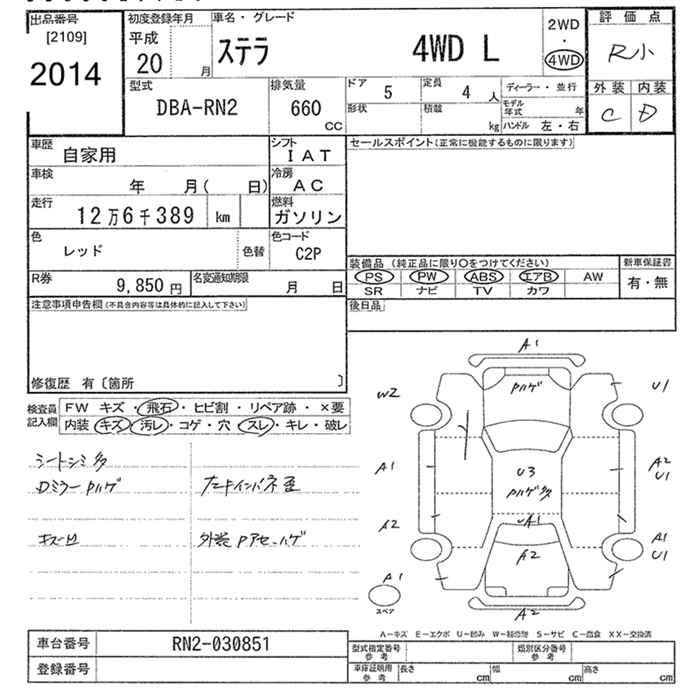 出品番号
[2109]
2014
初度登録年月
平成
20
月
車名・グレード
ステラ 4WD L
2WD
・
4WD
評価点
R小
外装 内装
C D
型式
DBA-RN2
排気量
660
CC
ドア
5
定員
4 人
形状
積載
kg
ディーラー・並行
モデル年式
年
ハンドル 左・右
車歴
自家用
シフト
IAT
車検
年 月( 日)
冷房
AC
走行
12万6千389 km
燃料
ガソリン
色
レッド
色替
色コード
C2P
R券
9,850 円
名変通知期限
月 日
セールスポイント(正常に機能するものに限ります)
装備品 (純正品に限り○をつけてください)
PS PW ABS エアB AW
SR ナビ TV カワ
新車保証書
有・無
後日品
注意事項申告欄(不具合内容等は具体的に記入して下さい)
修復歴 有〔箇所 〕
検査員記入欄
FW キズ・飛石・ヒビ割・リペア跡・×要
内装 キズ・汚レ・コゲ・穴・スレ・キレ・破レ
シートシミ多
Dミラー Pハゲ
キズ凹
外装 Pアセ、ハゲ
A1
Pハゲ
W2
U1
A1
U3
Pハゲ多
A2
U1
A2
UA1
A2
A1
U1
A1
スペア
A2
A−キズ E−エクボ U−凹み W−補修跡 S−サビ C−腐食 XX−交換済
車台番号
RN2-030851
登録番号
型式指定番号
参考
類別区分番号
参考
車庫証明用
参考
長さ cm
幅 cm
高さ cm